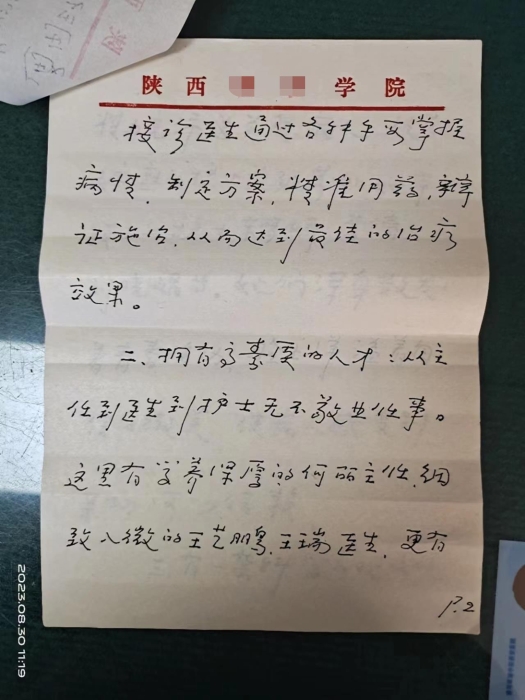 陕西 学院
接诊医生通过各种手段掌握
病情,制定方案,精准用药,辩
证施治,从而达到最佳的治疗
效果。
二、拥有高素质的人才:从主
任到医生到护士无不敬业任事。
这里有学养深厚的何丽主任,细
致入微的王艺鹏,王瑞医生,更有
P.2
2023.08.30 11:19